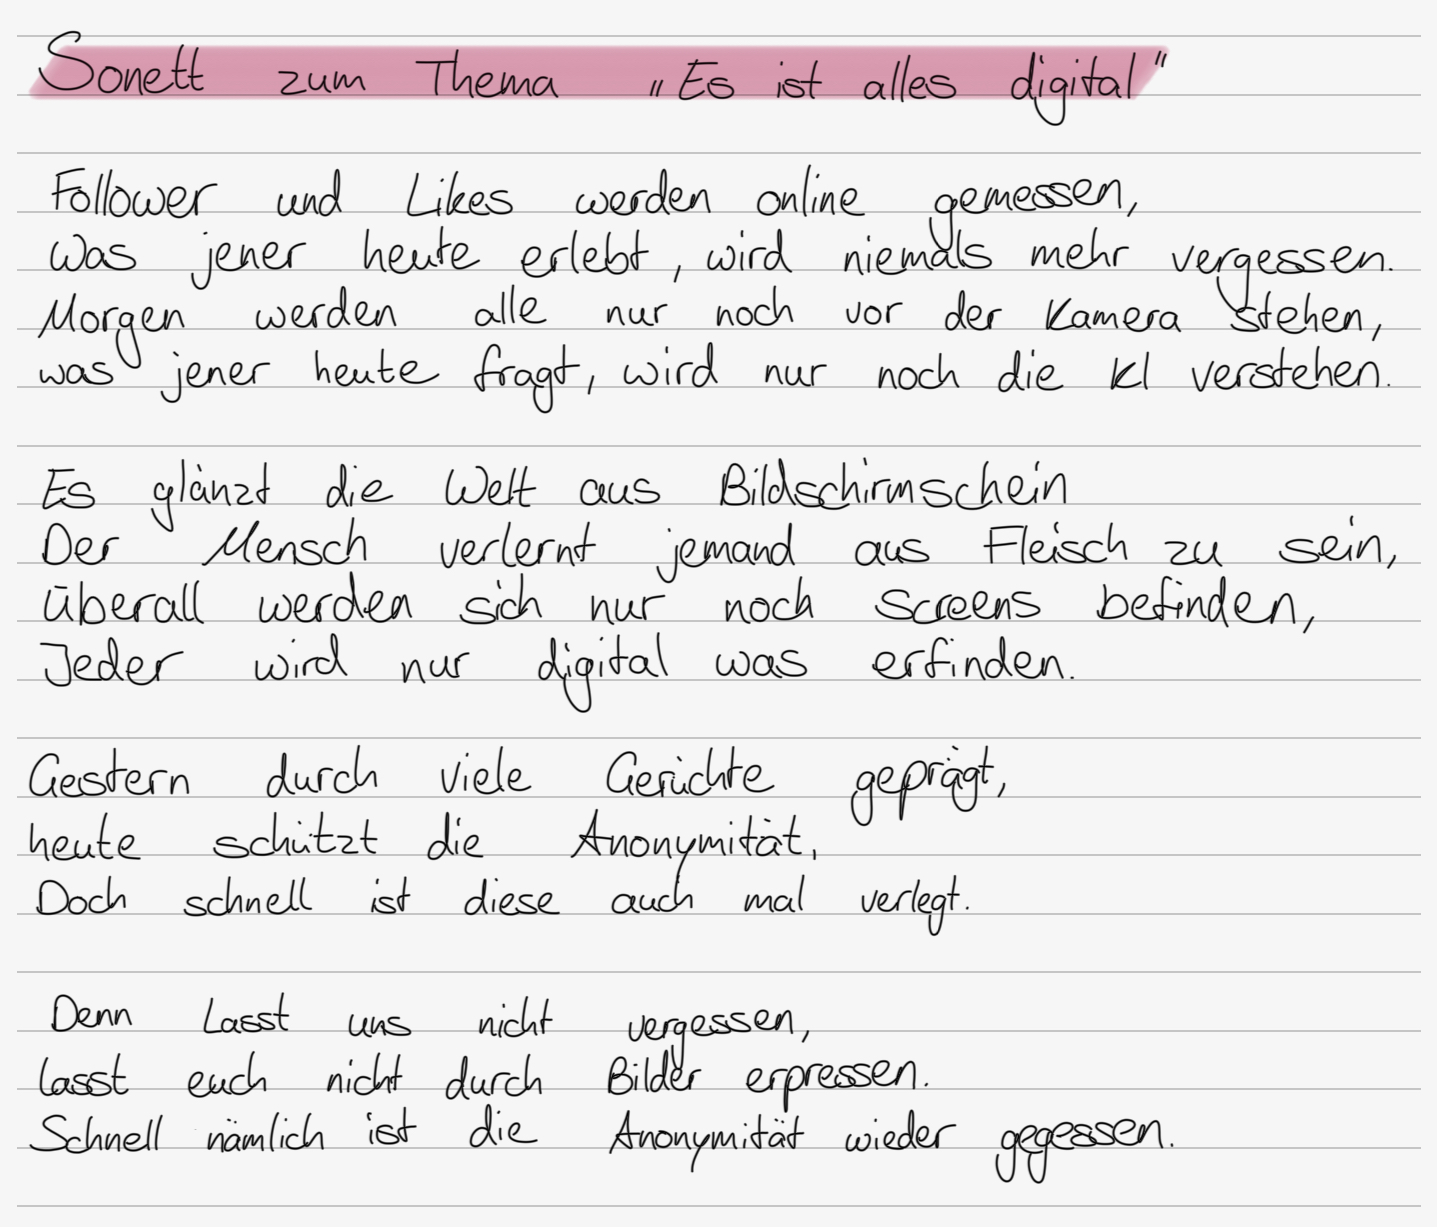 Sonett zum Thema „Es ist alles digital"
Follower und Likes werden online gemessen,
Was jener heute erlebt, wird niemals mehr vergessen.
Morgen werden alle nur noch vor der Kamera stehen,
was jener heute fragt, wird nur noch die KI verstehen.
Es glänzt die Welt aus Bildschirmschein
Der Mensch verlernt jemand aus Fleisch zu sein,
überall werden sich nur noch Screens befinden,
Jeder wird nur digital was erfinden.
Gestern durch viele Gerüchte geprägt,
heute schützt die Anonymität,
Doch schnell ist diese auch mal verlegt.
Denn Lasst uns nicht vergessen,
lasst euch nicht durch Bilder erpressen.
Schnell nämlich ist die Anonymität wieder gegessen.